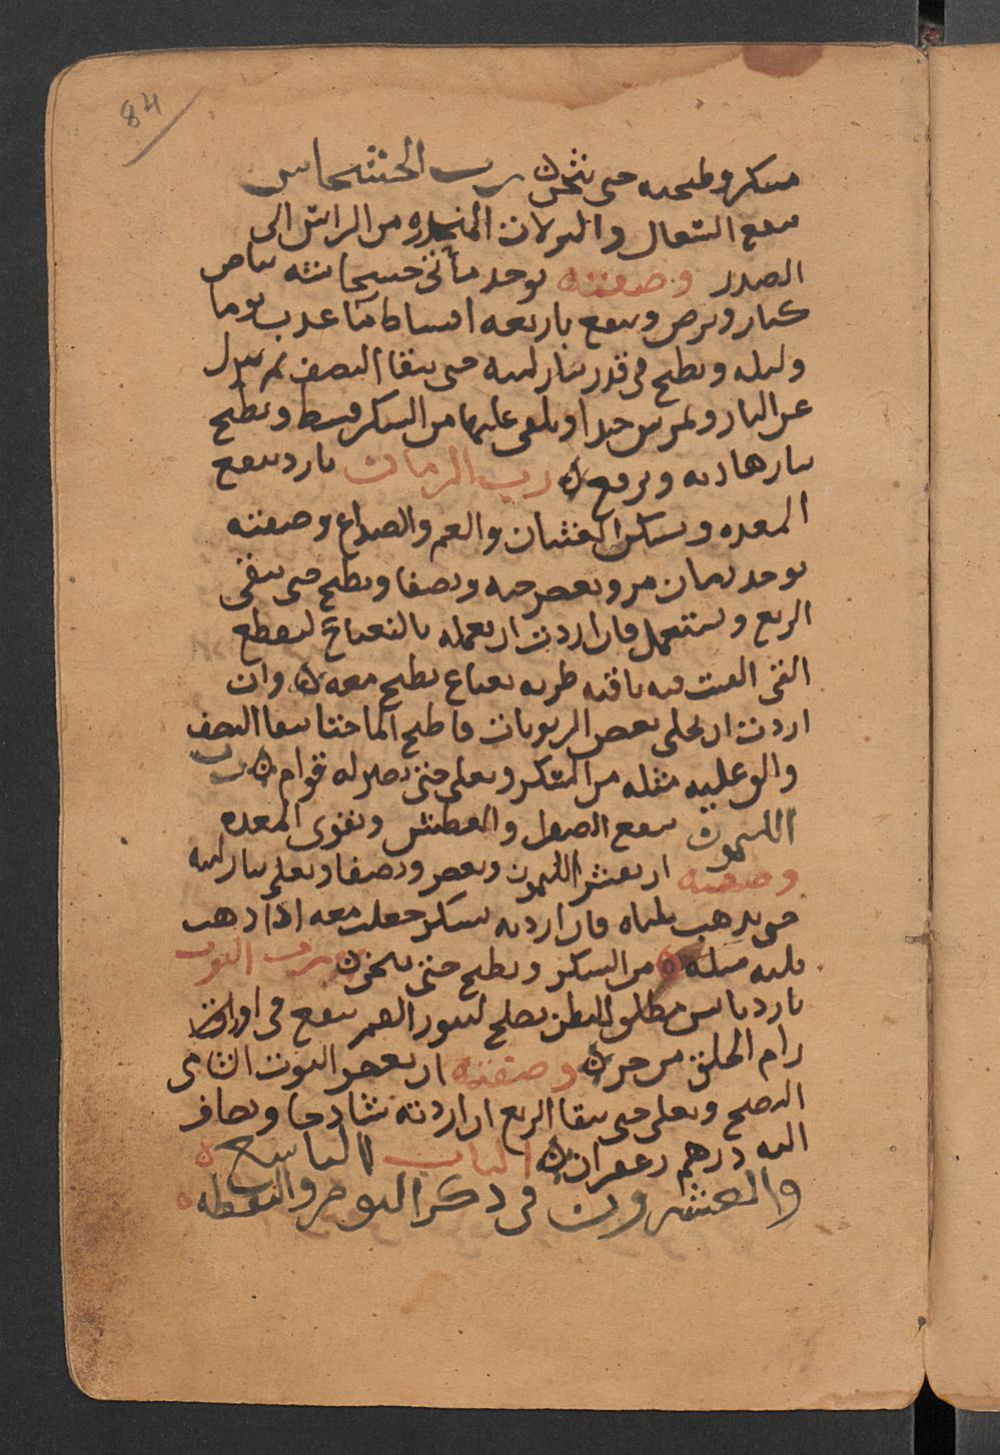 84
سكر وطبخه حتى يثخن ه رب الخشخاش
ينفع السعال والنزلات المنحدره من الراس الى
الصدر وصفته يوخد مائتى خشخاشه بياض
كبار ويرض وينقع باربعه اقساط ما عدب يوما
وليله ويطبخ فى قدر بنار لينه حتى يبقا النصف ثم ينزل
عن النار ويمرس جيدا ويلقى عليها من السكر قسط ويطبخ
بنار هاديه ويرفع ه رب الرمان بارد ينفع
المعده ويسكن الغثيان والغم والصداع وصفته
يوخد رمان مر ويعصر حبه ويصفا ويطبخ حتى يبقى
الربع ويستعمل فان اردت ان تعمله بالنعناع ليقطع
القى القيت فيه باقه طريه نعناع يطبخ معه ه وان
اردت ان تحلى بعض الربوبات فاطبخ الما حتا يبقا النصف
والق عليه مثله من السكر ويغلى حتى يصير له قوام ه رب
الليمون ينفع الصفرا والعطش ويقوى المعده
وصفته ان يقشر الليمون ويعصر ويصفا ويغلى بنار لينه
حتى يدهب ثلثاه فان اردته بسكر جعلت معه ادا دهب
ثلثه مثله ه من السكر ويطبخ حتى يثخن ه رب التوت
بارد يابس مطلق للبطن يصلح لبثور الفم ينفع فى
الحلق من حر ه وصفته ان يعصر التوت الشامى
النضج ويغلى حتى يبقا الربع ان اردته سادجا ويضاف
اليه درهم زعفران ه الباب التاسع ه
والعشرون فى دكر النوم واليقظه ه